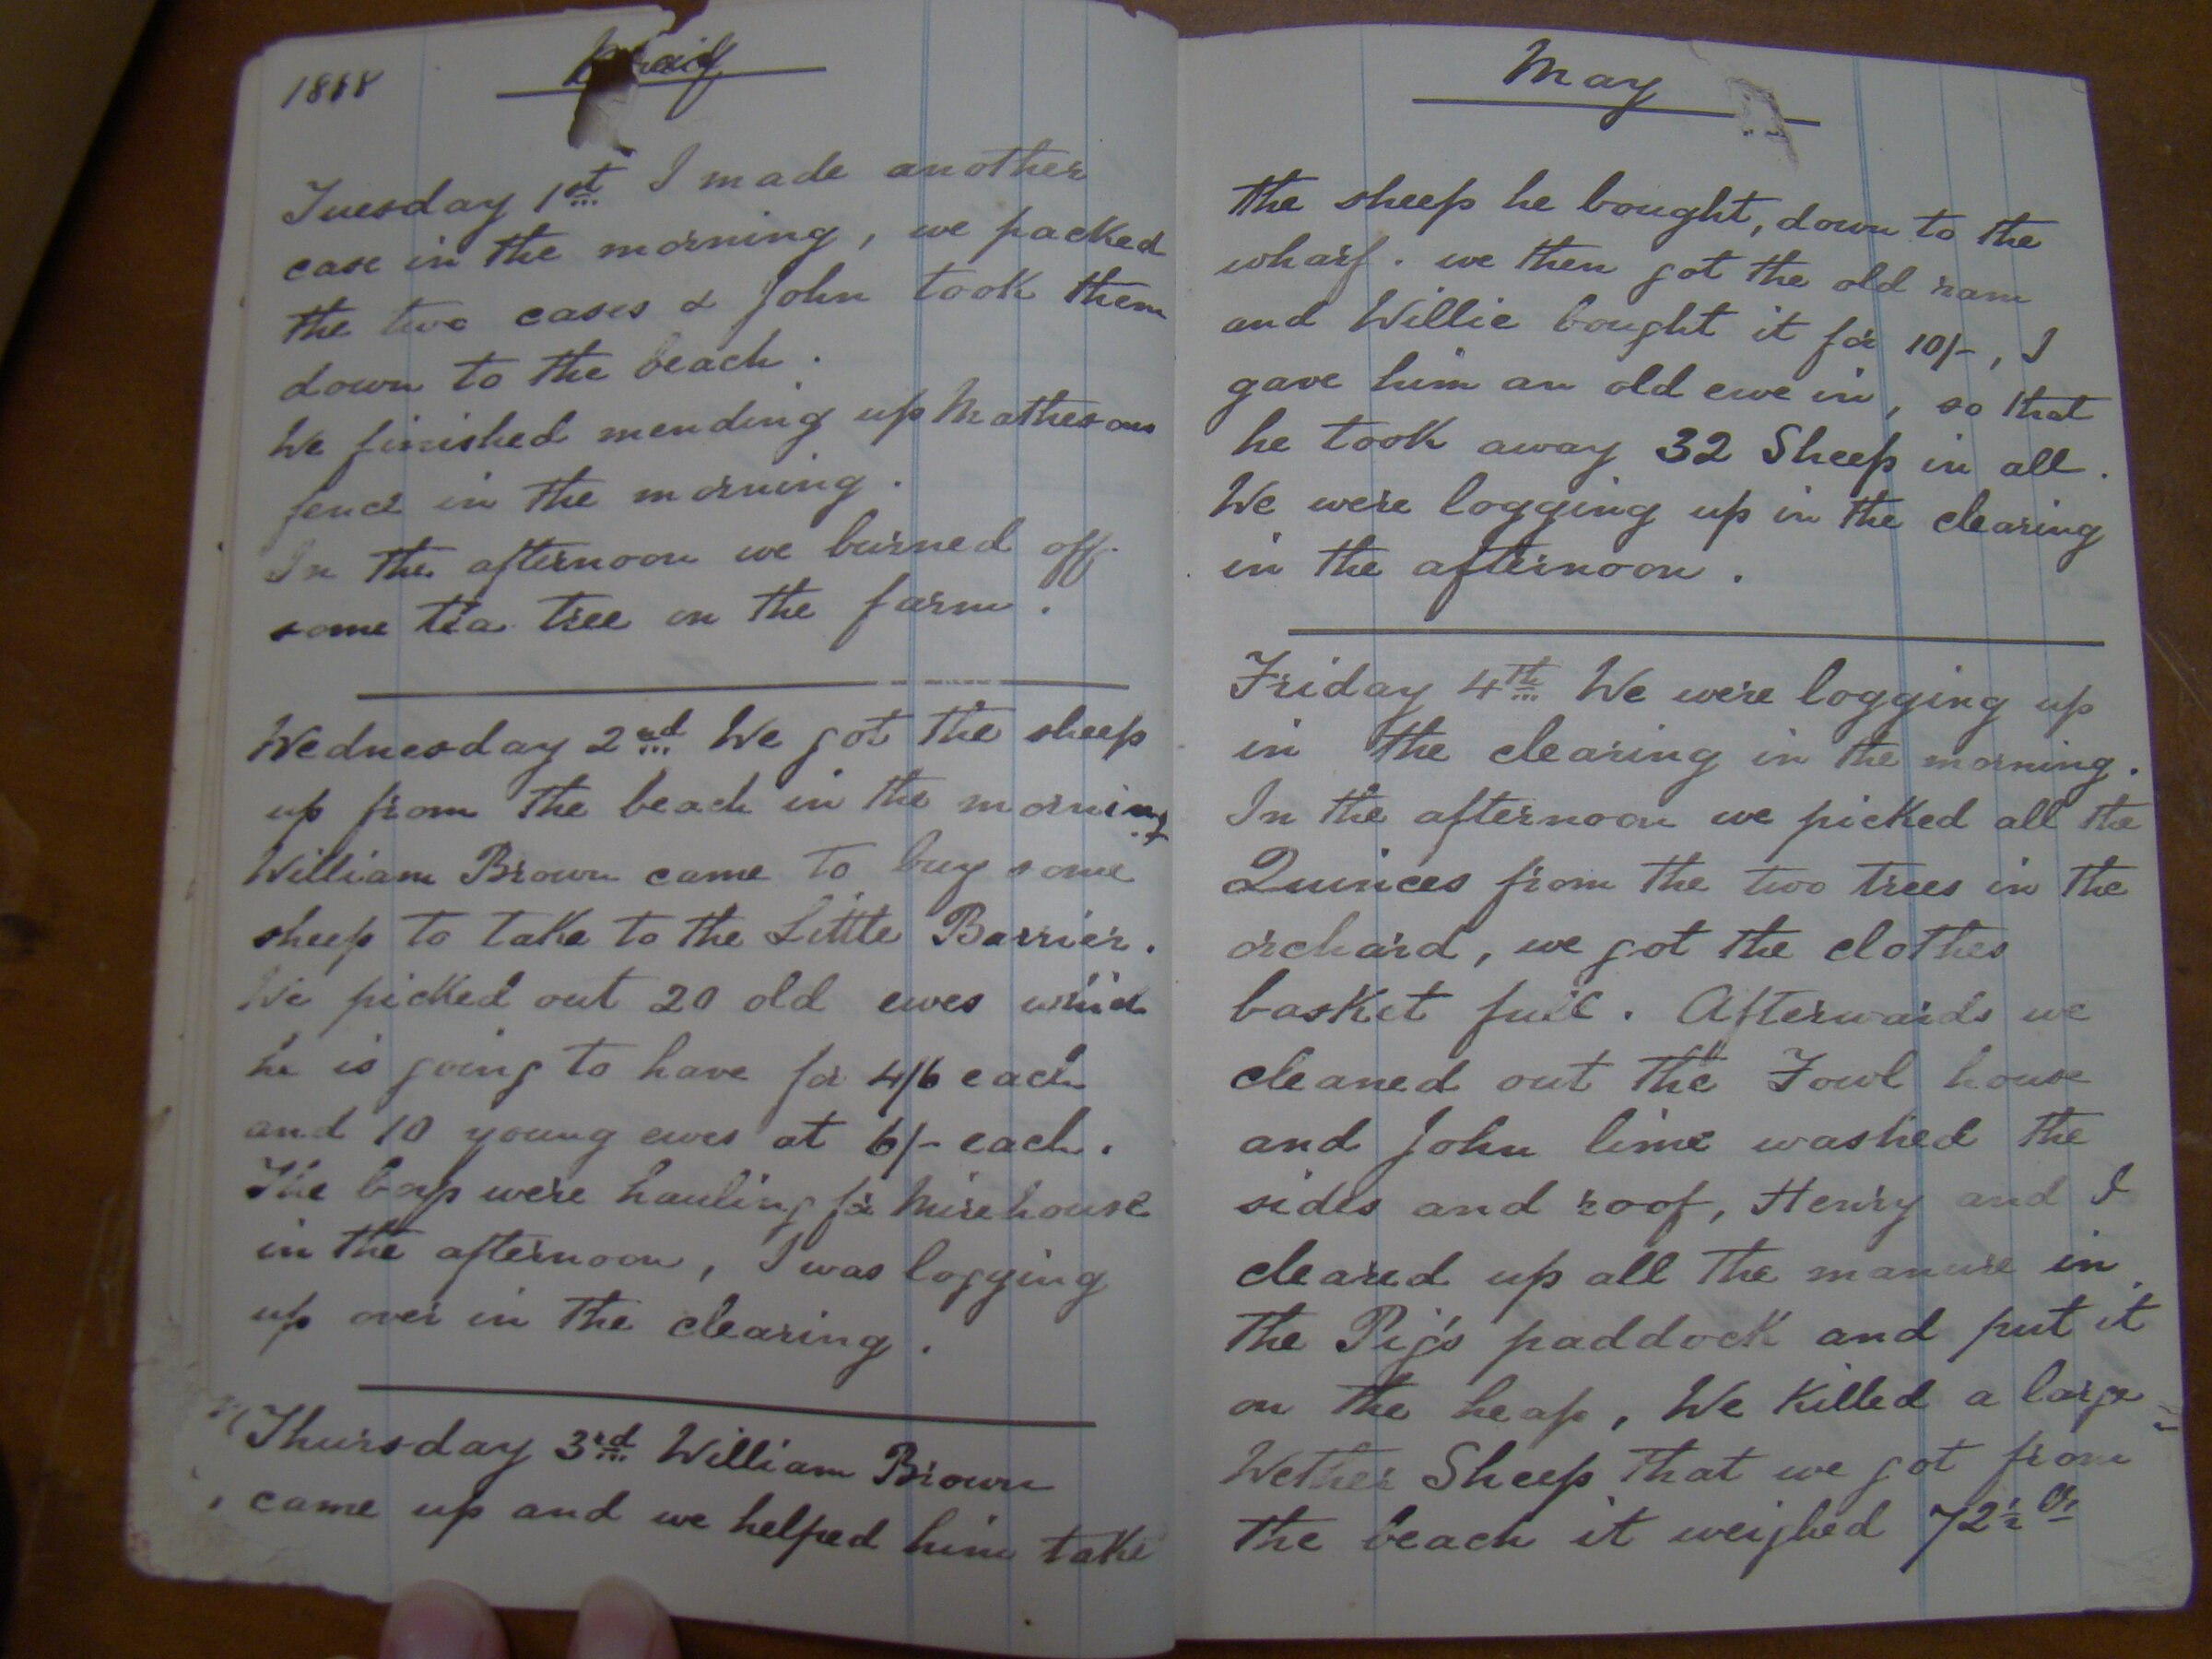 1888
Tuesday 1st I made another
case in the morning, we packed
the two cases & John took them
down to the beach.
We finished mending up Mathesons
fence in the morning.
In the afternoon we burned off
some tea tree on the farm.
Wednesday 2nd We got the sheep
up from the beach in the morning
William Brown came to buy some
sheep to take to the Little Barrier.
We picked out 20 old ewes which
he is going to have for 4/6 each
and 10 young ewes at 6/- each.
The boys were hauling for Mirehouse
in the afternoon, I was logging
up over in the clearing.
Thursday 3rd William Brown
came up and we helped him take
May
the sheep he bought, down to the
wharf. we then got the old ram
and Willie bought it for 10/-, I
gave him an old ewe in, so that
he took away 32 Sheep in all.
We were logging up in the clearing
in the afternoon.
Friday 4th We were logging up
in the clearing in the morning.
In the afternoon we picked all the
Quinces from the two trees in the
orchard, we got the clothes
basket full. Afterwards we
cleaned out the Fowl house
and John lime washed the
sides and roof, Henry and I
cleared up all the manure in
the Pig's paddock and put it
on the heap, We killed a large
Wether Sheep that we got from
the beach it weighed 72½ lbs